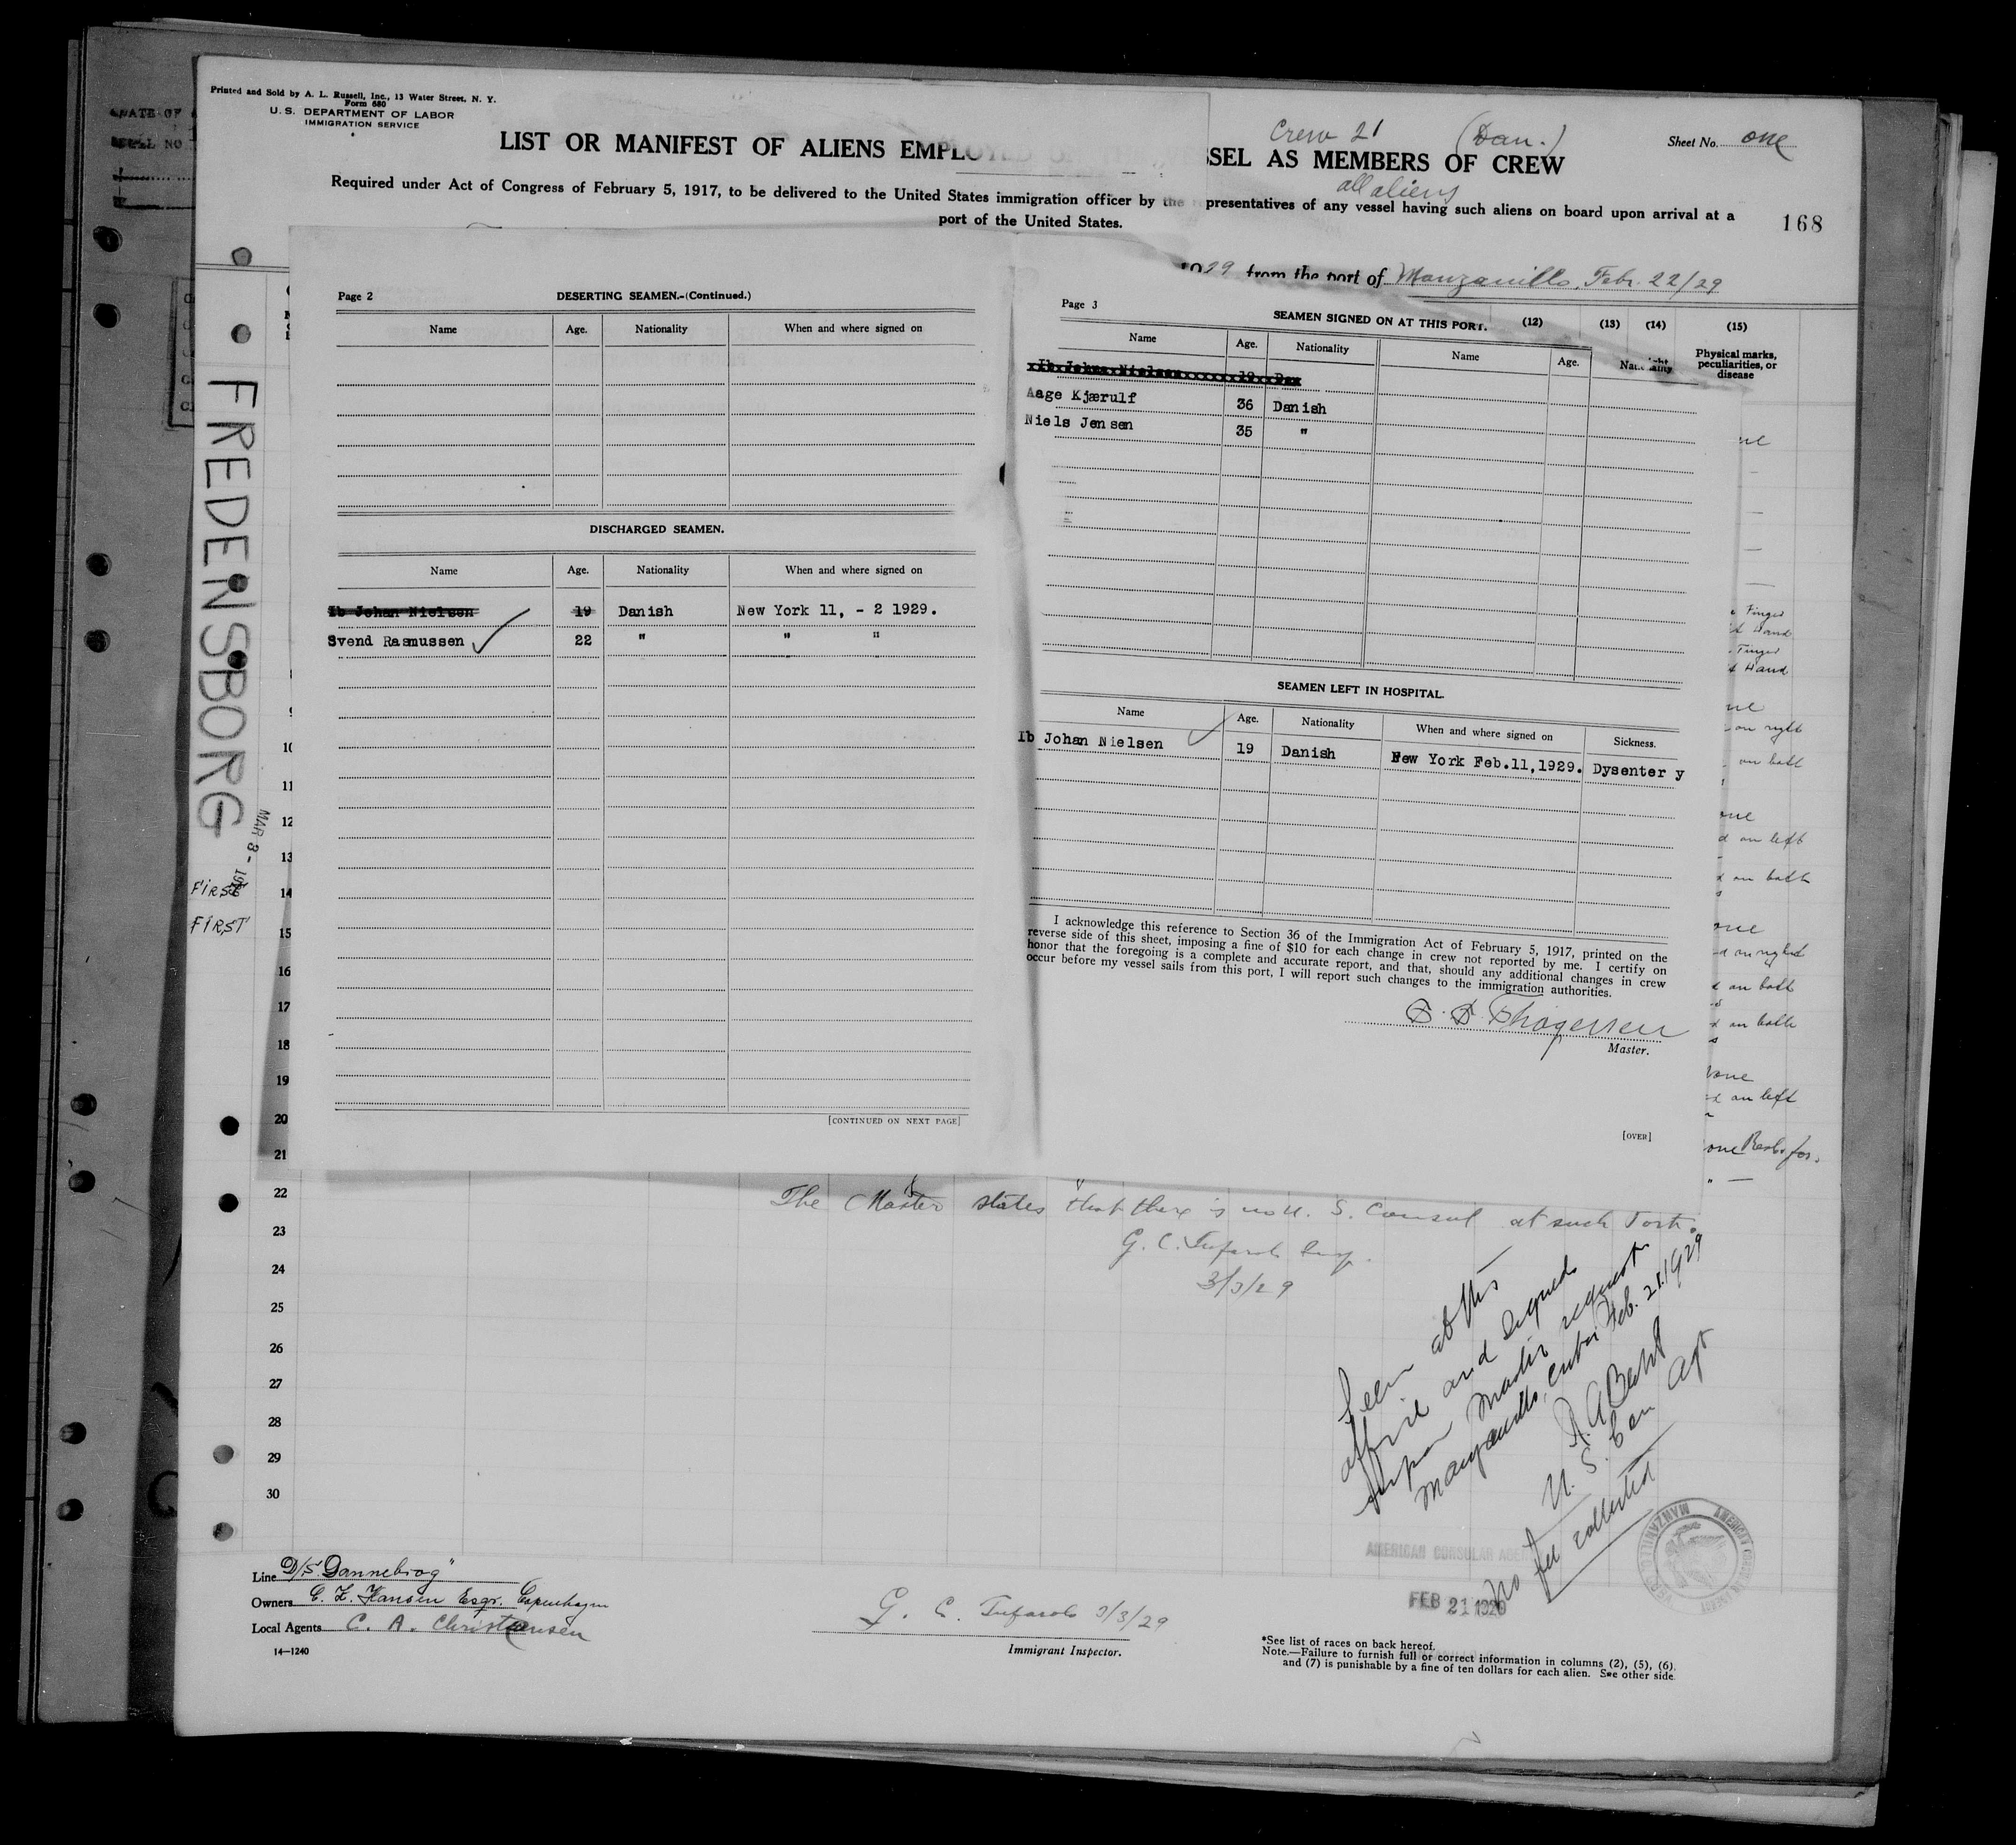 Printed and Sold by A. L. Russell, Inc., 13 Water Street, N. Y.
Form 680
U. S. DEPARTMENT OF LABOR
IMMIGRATION SERVICE
Crew 21 (Dan.)
Sheet No. one
LIST OR MANIFEST OF ALIENS EMPLOYED ON THE VESSEL AS MEMBERS OF CREW
all aliens
Required under Act of Congress of February 5, 1917, to be delivered to the United States immigration officer by the representatives of any vessel having such aliens on board upon arrival at a
port of the United States.
168
1929 from the port of Manzanillo, Febr. 22/29
(12) (13) (14) (15)
Physical marks,
peculiarities, or
disease
Page 2
DESERTING SEAMEN.-(Continued.)
Name Age. Nationality When and where signed on
DISCHARGED SEAMEN.
Name Age. Nationality When and where signed on
Ib Johan Nielsen 19 Danish New York 11, - 2 1929.
Svend Rasmussen 22 " " "
[CONTINUED ON NEXT PAGE]
Page 3
SEAMEN SIGNED ON AT THIS PORT.
Name Age. Nationality Name Age. Nationality
Ib Johan Nielsen 19 Dan
Aage Kjærulf 36 Danish
Niels Jensen 35 "
SEAMEN LEFT IN HOSPITAL.
Name Age. Nationality When and where signed on Sickness.
Ib Johan Nielsen 19 Danish New York Feb.11,1929. Dysentery
I acknowledge this reference to Section 36 of the Immigration Act of February 5, 1917, printed on the
reverse side of this sheet, imposing a fine of $10 for each change in crew not reported by me. I certify on
honor that the foregoing is a complete and accurate report, and that, should any additional changes in crew
occur before my vessel sails from this port, I will report such changes to the immigration authorities.
Thogersen
Master.
[OVER]
FREDENSBORG
MAR 3 - 1929
FIRST
FIRST
Finger
Hand
Finger
Hand
on right
on both
on left
on both
on right
on both
on both
on left
10
11
12
13
14
15
16
17
18
19
20
21
22
23
24
25
26
27
28
29
30
The Master states that there is no U. S. Consul at such Port.
G. C. Tufarolo Insp.
3/3/29
Seen at this
office and signed
upon Master request
Manzanillo, Cuba Feb. 21, 1929
U. S. Con Agt
No fee collected
AMERICAN CONSULAR AGENCY
FEB 21 1929
AMERICAN CONSULAR AGENCY MANZANILLO
Line D/S. Dannebrog"
Owners C. L. Hansen Esqr. Copenhagen
Local Agents C. A. Christensen
14—1240
G. C. Tufarolo 3/3/29
Immigrant Inspector.
*See list of races on back hereof.
Note.—Failure to furnish full or correct information in columns (2), (5), (6),
and (7) is punishable by a fine of ten dollars for each alien. See other side.